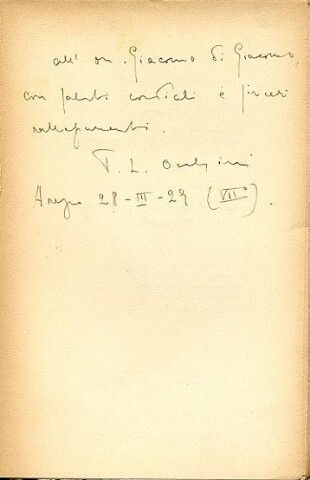 all' on. Giacomo di Giacomo,
con saluti cordiali e sinceri
rallegramenti.
P. L. Occhini
Arezzo 28-III-29 (VII°).